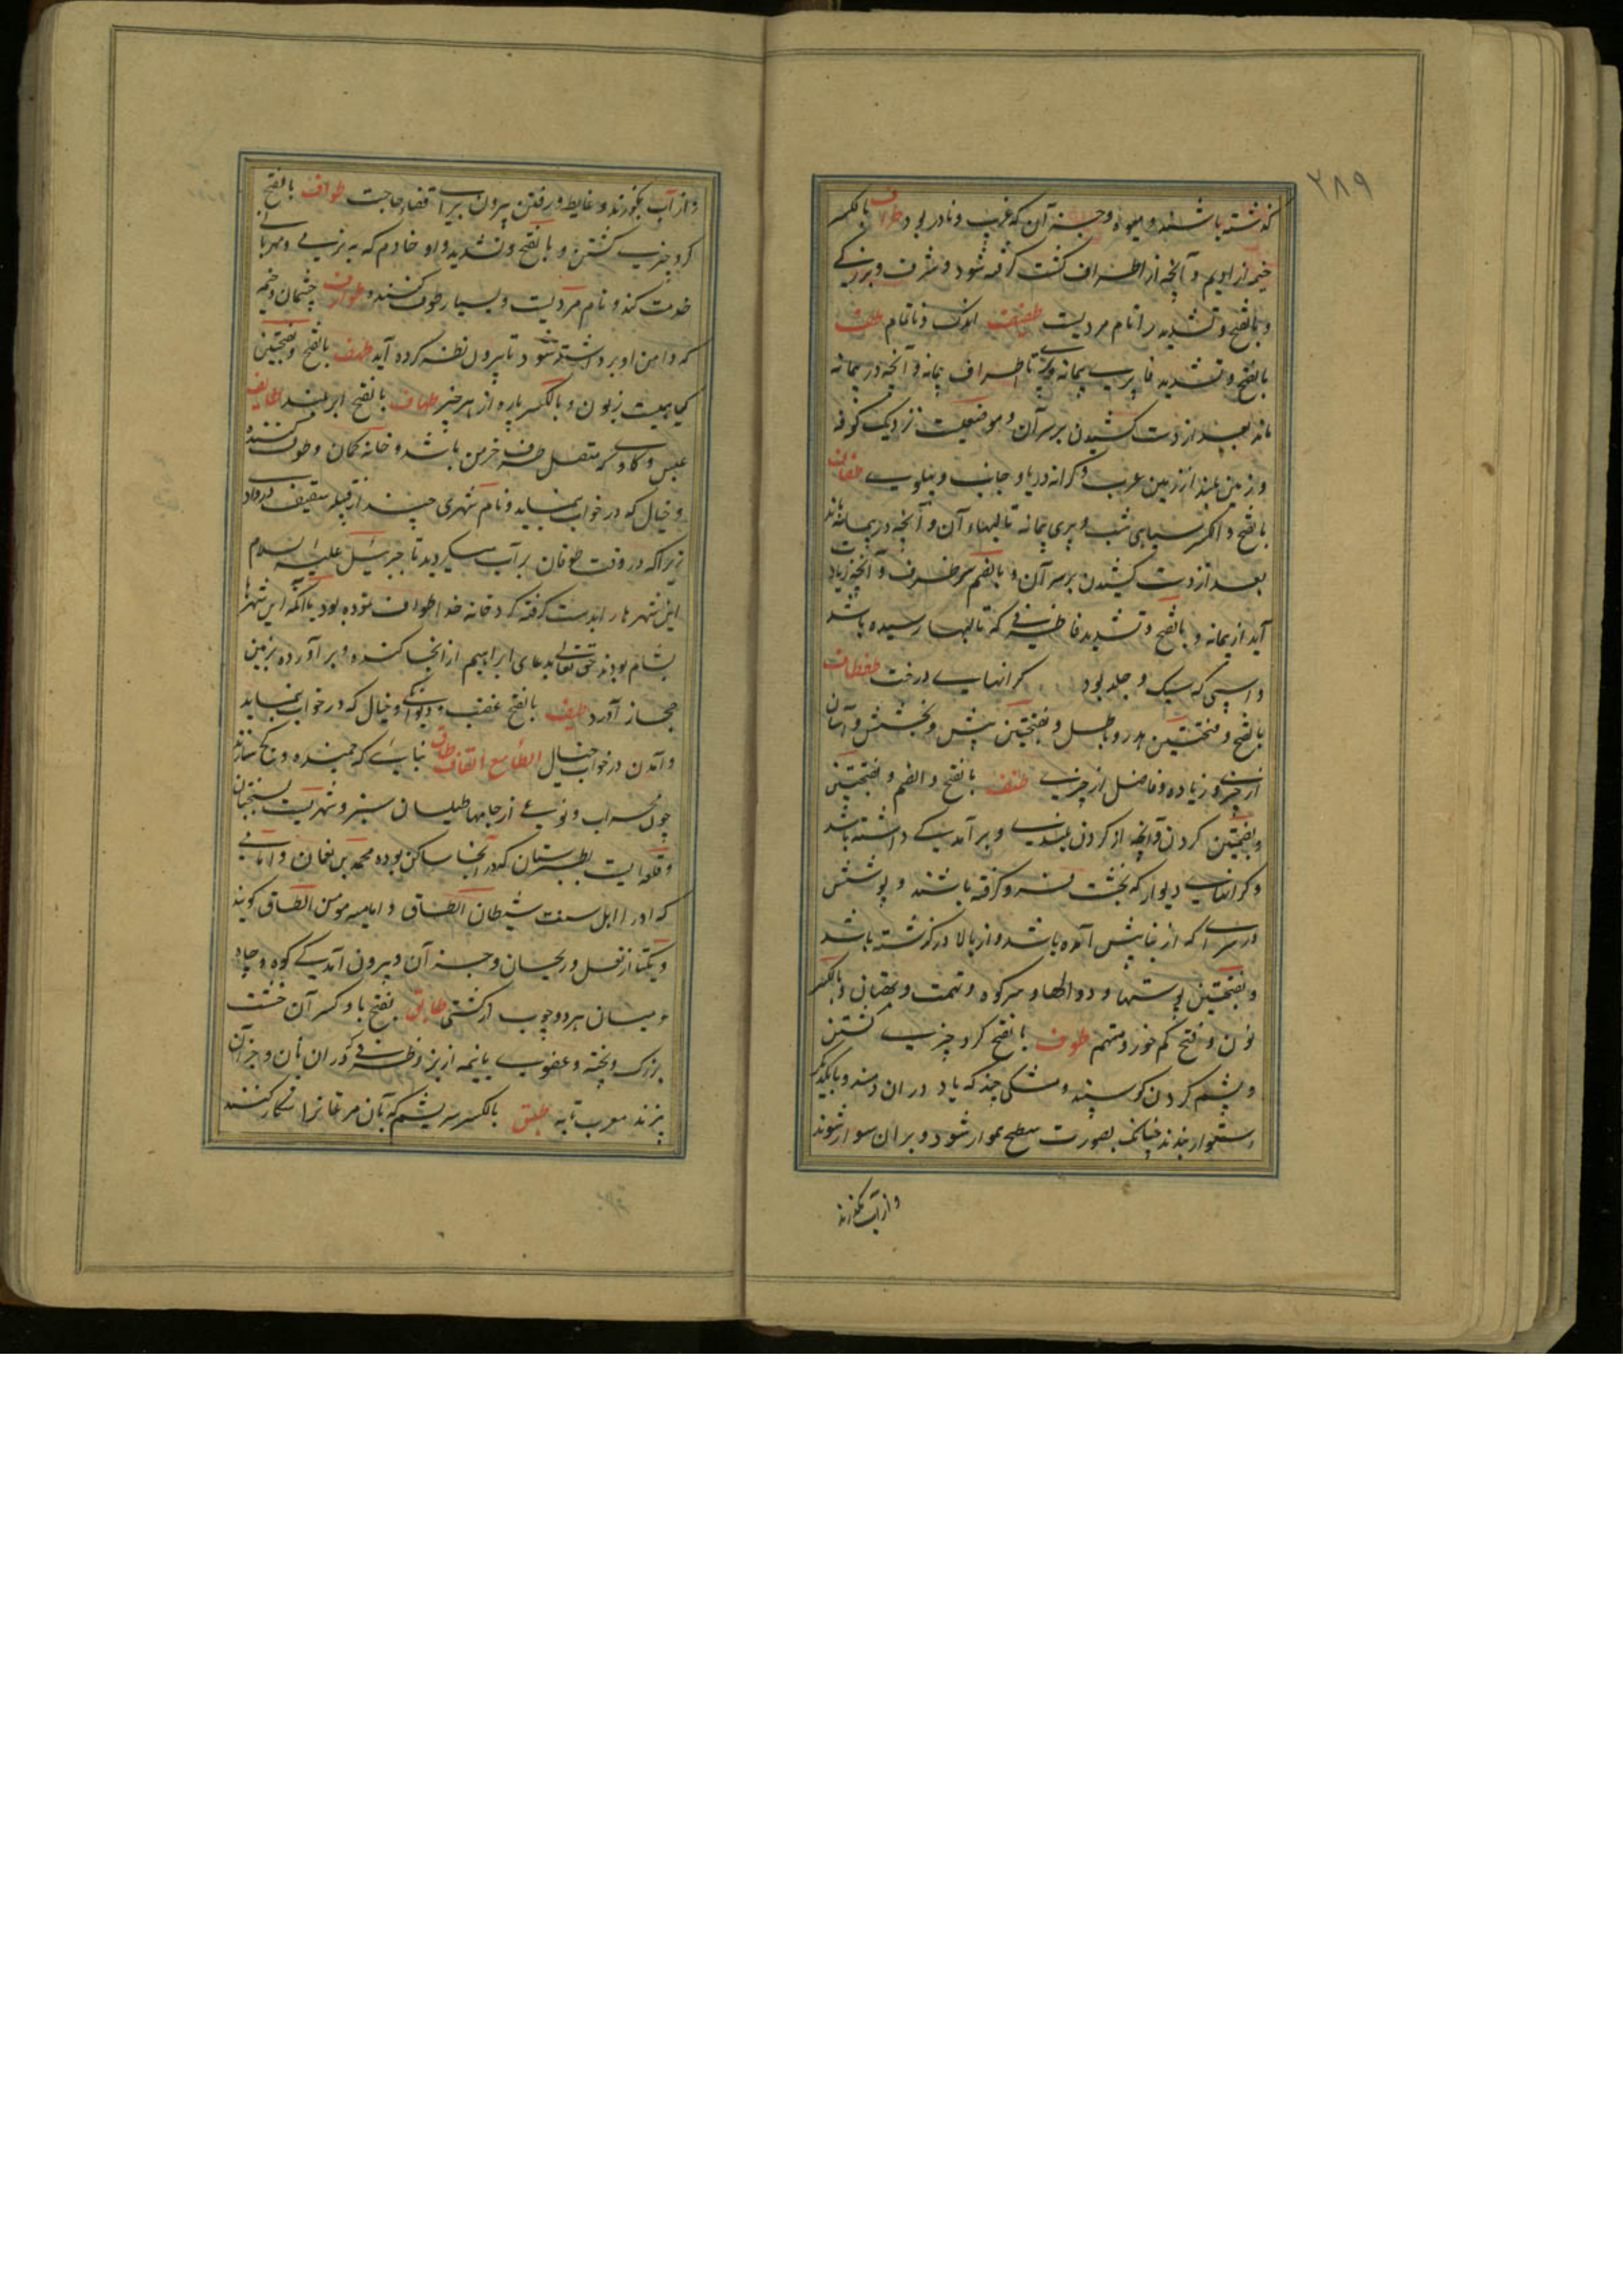 ۲۸۹
گذشته باشند و میوه و جز آن که غریب و نادر بود طراف بالکسر
خیمه از ادیم و آنچه از اطراف کشت گرفته شود و شرف و بزرگی
و بالفتح و تشدید را نام مردیست طفیف اندک و ناتمام طف
بالفتح و تشدید فا پری پیمانه تا اطراف پیمانه و آنچه در پیمانه
ماند بعد از دست کشیدن بر سر آن و موضعیست نزدیک کوفه
و زمین بلند از زمین عرب و کرانه دریا و جانب و پهلوی طفاف
بالفتح و الکسر سیاهی شب و پری پیمانه تا لبهاء آن و آنچه در پیمانه ماند
بعد از دست کشیدن بر سر آن و بالضم سر ظرف و آنچه زیاد
آید از پیمانه و بالفتح و تشدید فا ظرفی که تا لبها رسیده باشد
و اسپی که سبک و جلد بود کرانهای درخت طفطاف
بالفتح و فتحتین هدر و باطل و بفتحتین بیش و بخشش و آسان
از چیزی و زیاده و فاضل از چیزی طنف بالفتح و الضم و بفتحتین
و بضمتین کردن و آنچه از کردن بلندی و برآمدگی داشته باشد
و کرانهای دیوار که بخشت فرو گرفته باشند و پوشش
در سرای که از بنا پیش آمده باشد و از بالا در گذشته باشد
و بفتحتین پوستها و دوالها و سر کوه و تهمت و بالکسر
نون و فتح کم خور و متهم طوف بالفتح گرد چیزی گشتن
و پشم کردن گوسپند و مشکی چند که باد در آن دمند و بایکدیگر
استوار بندند چنانک بصورت سطح هموار شود و بر آن سوار شوند
و از آب بگذرند
و از آب بگذرند و غایط و رفتن بیرون برای قضاء حاجت طواف بالفتح
گرد چیزی گشتن و بالفتح و تشدید واو خادم که به نرمی و مهربانی
خدمت کند و نام مردیست و بسیار طوف کننده و طوارف چشمان و خیمه
که دامن او برداشته شود تا بیرون نظر کرده آید طهف بالفتح و بفتحتین
گیاهیست زبون و بالکسر پاره از هر چیز طهاف بالفتح ابر بلند طایف
عسس و گاوی که متصل طرف خرمن باشد و خانه کمان و طوف کننده
و خیال که در خواب بنماید و نام شهری چند از قبله ثقیف در واد
زیرا که در وقت طوفان بر آب میگردید تا جبرئیل علیه السلام
این شهر ها را بدست گرفته گرد خانه خدا طواف نموده بود یا آنکه این شهرها
بشام بودند حق تعالی بدعای ابراهیم از آنجا کنده و برآورده بزمین
حجاز آورد طیف بالفتح غضب و دیوانگی و خیال که در خواب بنماید
و آمدن در خواب خیال الطاء مع القاف طاق بنائی که خمیده و کج سازند
چون محراب و نوعی از جامها طیلسان سبز و شهریست بسیستان
و قلعه ایست بطبرستان که در آنجا ساکن بوده محمد بن نعمان و امامی
که او را اهل سنت شیطان الطاق و امامیه مومن الطاق گویند
و یکتا از نعل و ریحان و جز آن و بیرون آمدگی کوه و چاه
و میان هر دو چوب از کشتی طابق بفتح با و کسر آن خشت
بزرگ و پخته و عضوی یا نیمه از بز و ظرفی که در آن نان و جز آن
پزند معرب تابه طبق بالکسر سریشم که بآن مرغانرا شکار کنند